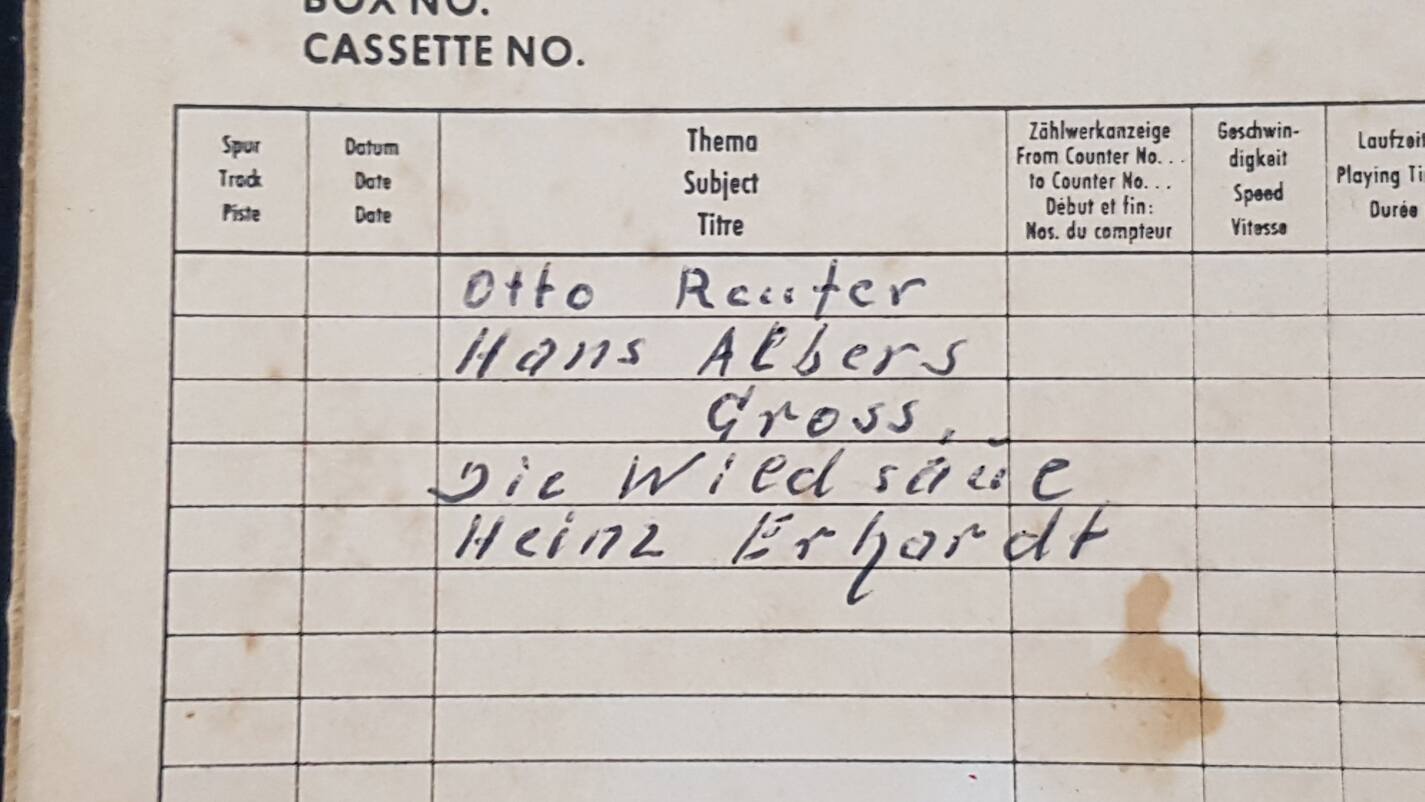 BOX NO.
CASSETTE NO.
Spur
Track
Piste
Datum
Date
Date
Thema
Subject
Titre
Zählwerkanzeige
From Counter No. . .
to Counter No. . .
Début et fin:
Nos. du compteur
Geschwin-
digkeit
Speed
Vitesse
Laufzeit
Playing Ti
Durée
Otto Reuter
Hans Albers
Gross.
Die Wildsäue
Heinz Erhardt